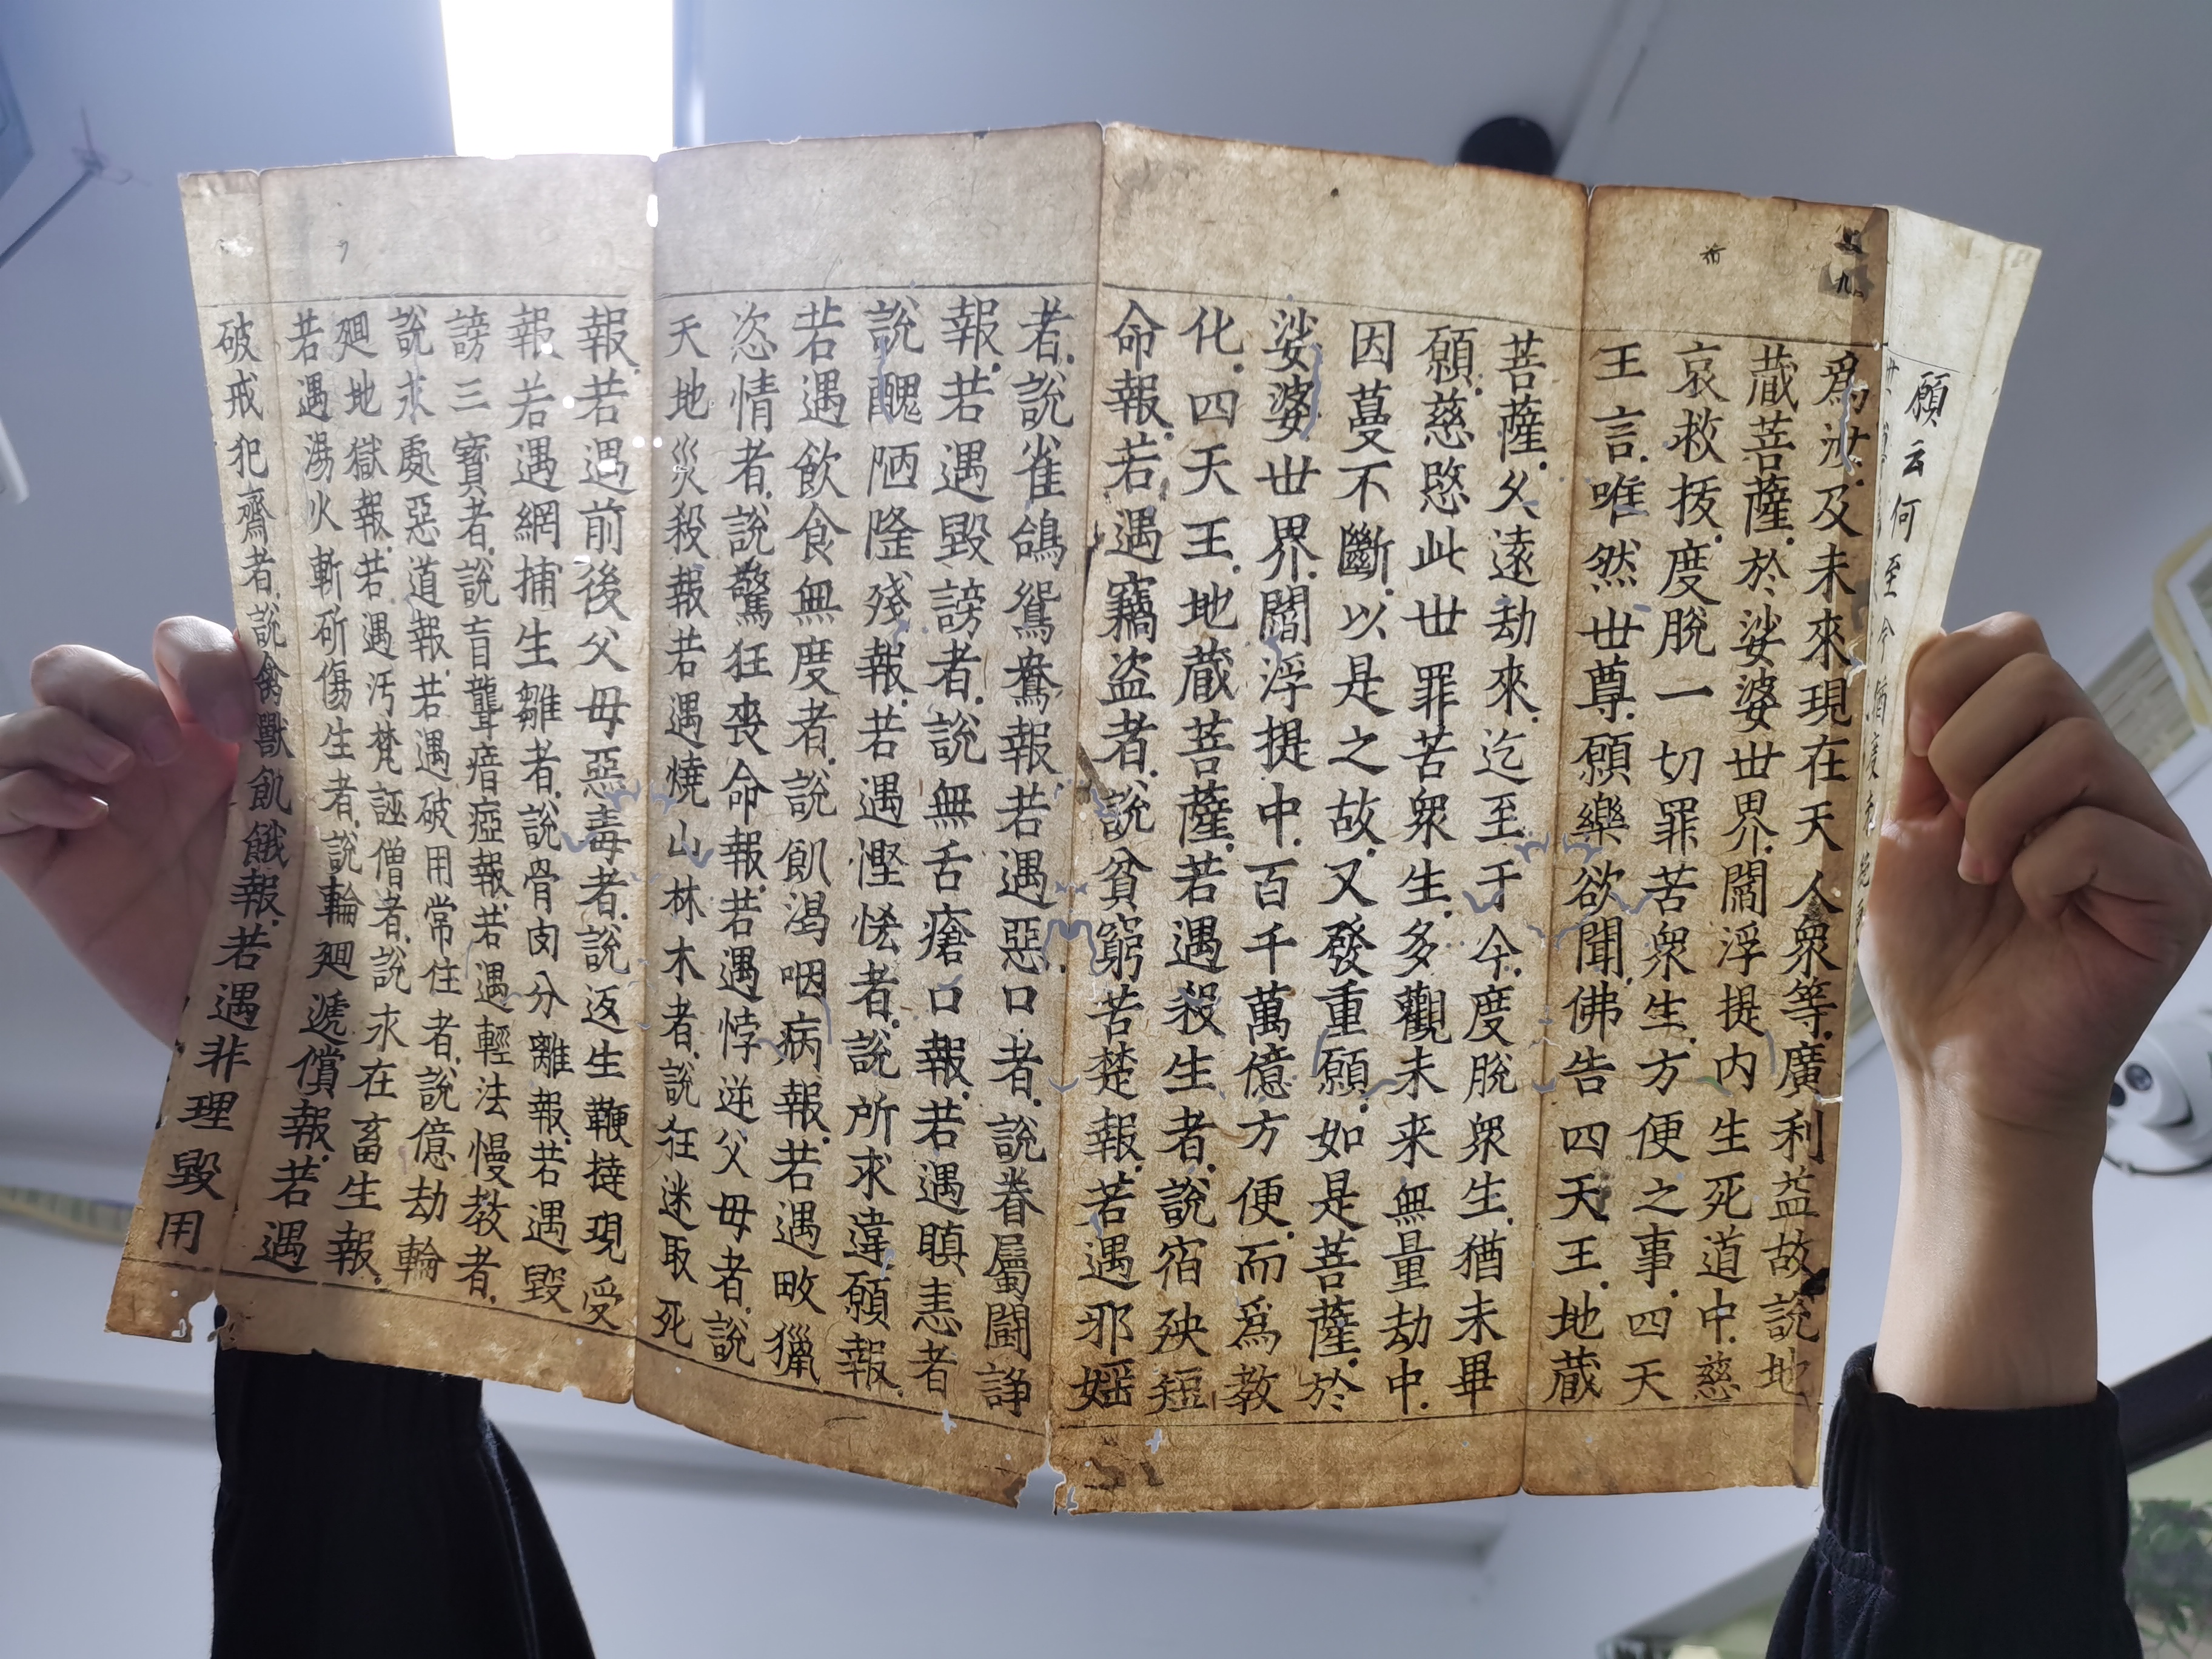 願云何至今猶度未
為汝.及未來現在天人衆等.廣利益故說地
蔵菩薩.於娑婆世界.閻浮提内生死道中.慈
哀救拔.度脫一切罪苦衆生.方便之事.四天
王言.唯然世尊.願樂欲聞.佛告四天王.地蔵
菩薩.久遠劫來.迄至于今.度脫衆生.猶未畢
願.慈愍此世罪苦衆生.多觀未来無量劫中.
因蔓不斷.以是之故.又發重願.如是菩薩.於
娑婆世界.閻浮提中.百千萬億方便.而爲教
化.四天王.地蔵菩薩.若遇殺生者.說宿殃短
命報.若遇竊盗者.說貧窮苦楚報.若遇邪婬
者.說雀鴿鴛鴦報.若遇惡口者.說眷屬鬬諍
報.若遇毀謗者.說無舌瘡口報.若遇瞋恚者
說醜陋癃殘報.若遇慳悋者.說所求違願報.
若遇飲食無度者.說飢渴咽病報.若遇畋獵
恣情者.說驚狂喪命報.若遇悖逆父母者.說
天地災殺報若遇燒山林木者.說狂迷取死
報.若遇前後父母惡毒者.說返生鞭撻現受
報.若遇網捕生雛者.說骨肉分離報.若遇毀
謗三寶者.說盲聾瘖瘂報.若遇輕法慢教者.
說永處惡道報.若遇破用常住者.說億劫輪
廻地獄報.若遇汚梵誣僧者.說永在畜生報.
若遇湯火斬斫傷生者.說輪廻遞償報.若遇
破戒犯齋者.說禽獸飢餓報.若遇非理毀用